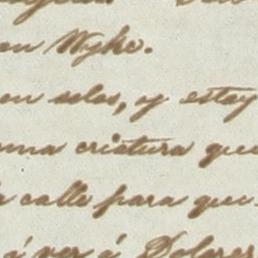 en Wyke.
en solos, y estoy
una criatura que
calle para que
á ver á Dolores